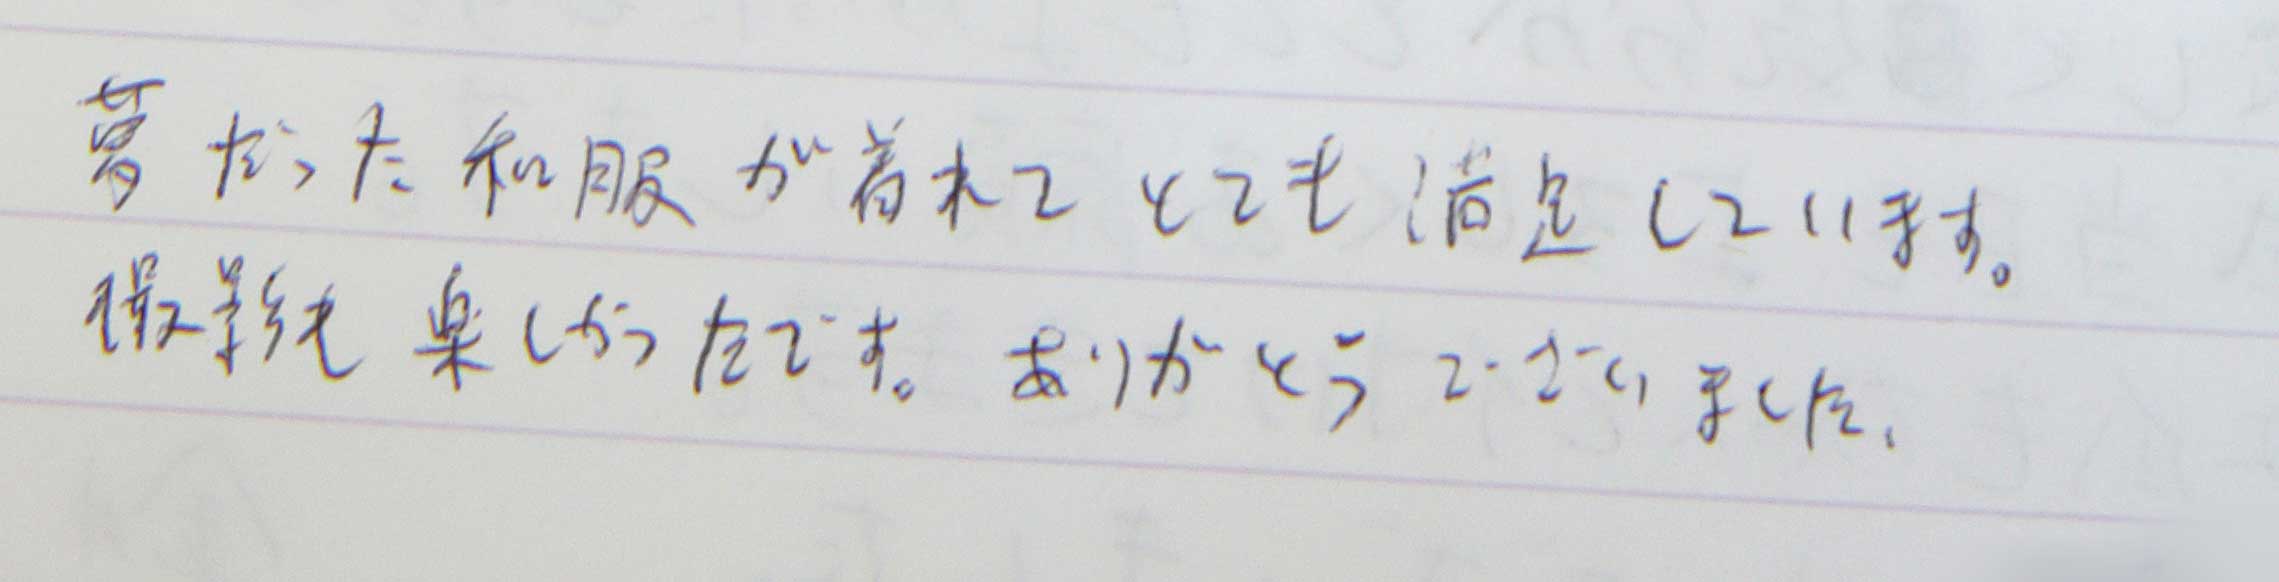 夢だった和服が着れてとても満足しています。
撮影も楽しかったです。ありがとうございました。